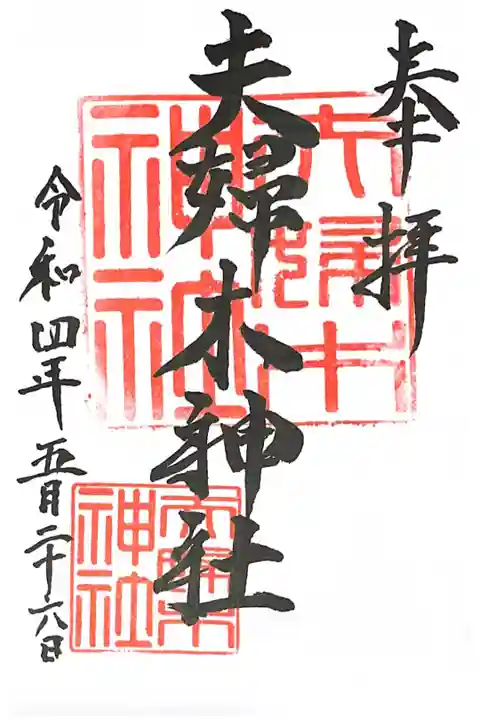 奉拝
夫婦木神社
令和四年五月二十六日
夫婦木神社
夫婦木神社